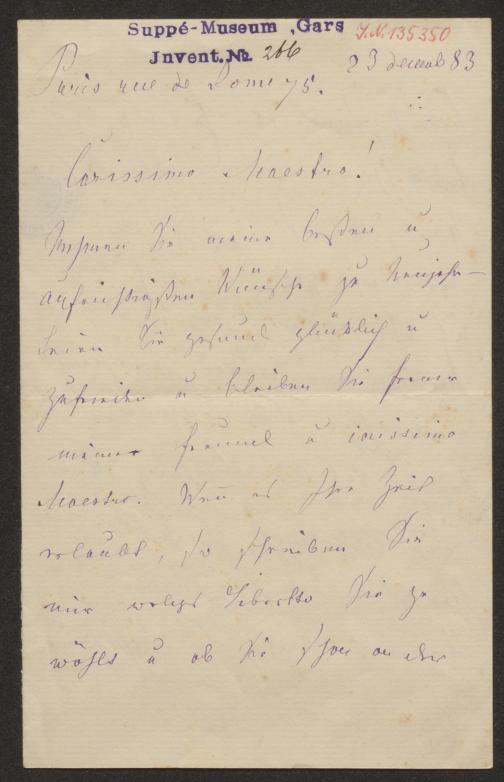 Suppé-Museum, Gars
J.N. 135350
Invent. No. 266
23 decemb 83
Paris rue de Rome 75.
Carissimo Maestro!
Nehmen Sie meine besten u
aufrichtigsten Wünsche zu Neujahr –
Seien Sie gesund glücklich u
zufrieden u bleiben Sie ferner
meiner freund u carissimo
Maestro. Wenn es Ihre Zeit
erlaubt, so schreiben Sie
mir welches Libretto Sie ge
wählt u ob Sie schon an der